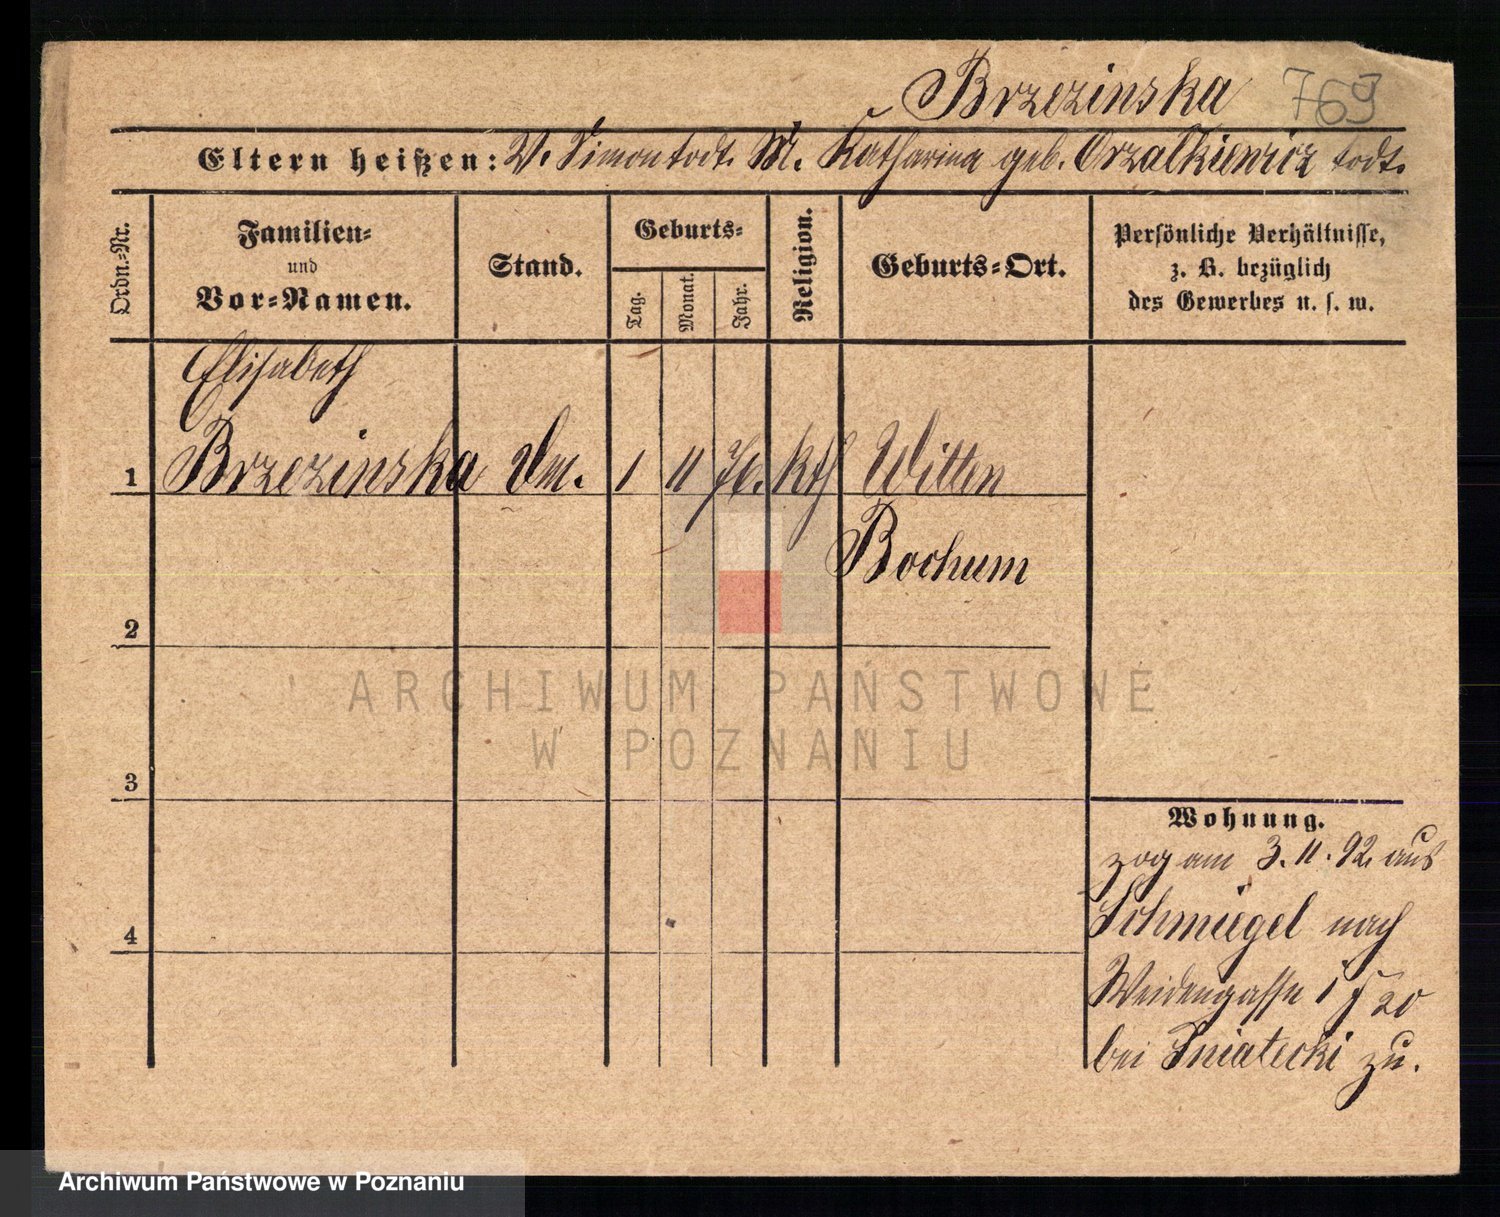 Brzezinska 769
Eltern heißen: V. Simon todt. M. Katharina geb. Orzalkiewicz todt.
Ordn.-Nr.
Familien-
und
Vor-Namen.
Stand.
Geburts-
Tag.
Monat.
Jahr.
Religion.
Geburts-Ort.
Persönliche Verhältnisse,
z. B. bezüglich
des Gewerbes u. s. w.
Elisabeth
1 Brzezinska 1 11 76. kth Witten
Bochum
2
3
4
Wohnung.
zog am 3. 11. 92. aus
Schmiegel nach
Weidengasse 20
bei Sniatecki zu.
ARCHIWUM PAŃSTWOWE
W POZNANIU
Archiwum Państwowe w Poznaniu